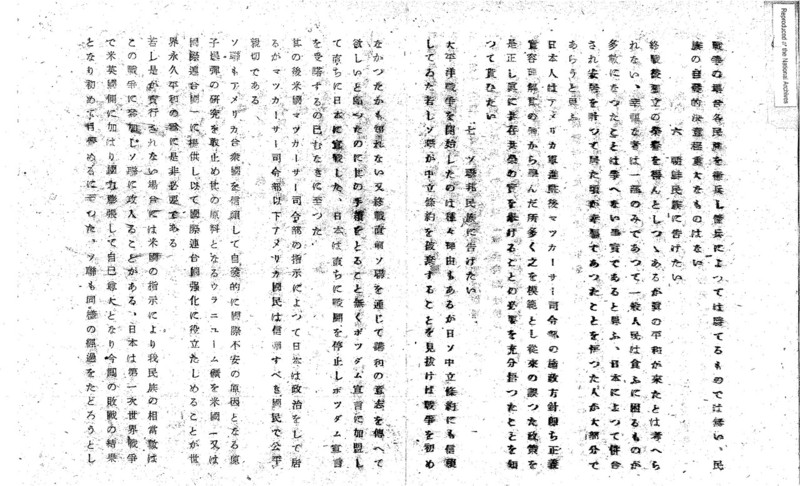 Reproduced at the National Archives
戰爭の場合各民族を衞兵し警兵によつては勝てるものでは無い、民
族の自發的決意程重大なものはない
六 朝鮮民族に告げたい
終戰後獨立の榮譽を得んとしつゝあるが眞の平和が來たとは考へら
れない、幸福な者は一部のみであつて一般人民は食ふに困るものが
多數になつたことは爭へない事實であると思ふ、日本によつて併合
され安居を計つて居た頃が幸福であつたことを悟つた人が大部分で
あらうと思ふ
日本人はアメリカ軍進駐後マツカーサー司令部の施政方針即ち正義
寬容理解の から學んだ所多く之を模範とし從來の誤つた政策を
是正し眞に共存共榮の實を擧げることの必要を充分悟つたことを知
つて貰ひたい
七 ソ聯邦民族に告げたい
太平洋戰爭を開始したのは種々理由もあるが日ソ中立條約にも信賴
してゐた若しソ聯が中立條約を破棄することを見拔けば戰爭を初め
なかつたかも知れない又終戰直前ソ聯を通じて講和の意志を傳へて
欲しいと賴つたのに其の手續をとること無くポツダム宣言に加盟し
て直ちに日本に宣戰した、日本は直ちに戰鬪を停止しポツダム宣言
を受諾するの已むなきに至つた
其の後米國マツカーサー司令部の指示によつて日本は政治をして居
るがマツカーサー司令部以下アメリカ國民は信賴すべき國民で公平
親切である
ソ聯もアメリカ合衆國を信賴して自發的に國際不安の原因となる原
子爆彈の研究を取止め其の原料となるウラニューム鑛を米國一又は
國際連合國一に提供し以て國際連合國强化に役立たしめることが世
界永久平和の爲に是非必要である
若し是が實行されない場合には米國の指示により我民族の相當數は
この戰爭に參加しソ聯に攻入ることがある、日本は第一次世界戰爭
で米英國側に加はり國力膨張して自己尊大となり今囘の敗戰の結果
となり初めて目ざめるに至つた、ソ聯も同樣の經過をたどろうとし